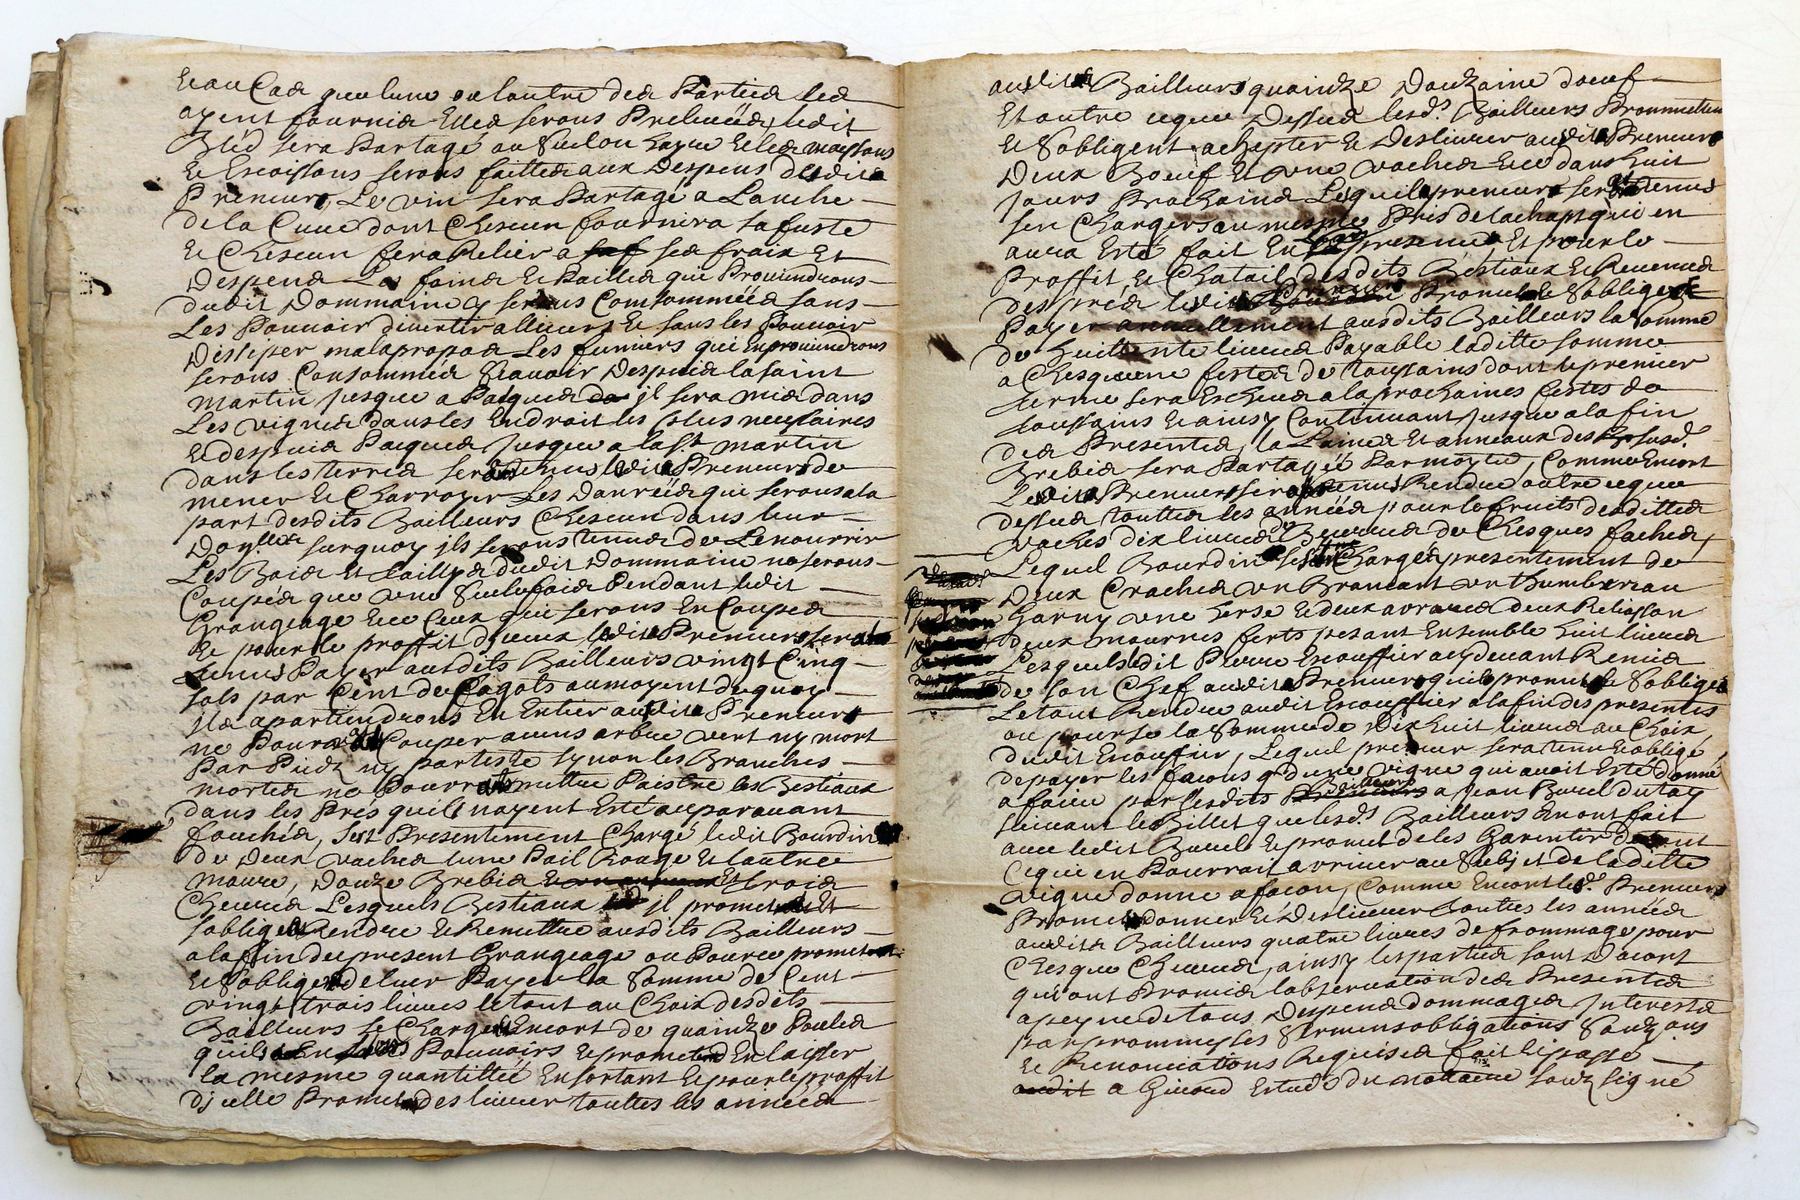 Et au Cas que lune ou lautre des Parties les
ayent fournis Elles serons Prelevées, ledit
Bled sera Partagé au Seulon Et les moissons
Et Escoissons serons faittes aux Despens desdits
Preneurs, Le vin sera Partagé a Lanche
de la Cuve dont Chescun fournira sa fuste
Et Chescun fera Relier a ses fraix Et
Despens Les foins Et Pailles qui Proviendrons
dudit Dommaine y serons Consommées sans
Les Pouvoir divertir allieurs Et sans les Pouvoir
Dissiper mal apropos Les fumiers qui en proviendrons
serons Consommés Scavoir Despuis la saint
martin jusque a Pasques il sera mis dans
Les vignes dans les Endroit les plus necessaires
Et despuis Pasques jusque a la st martin
dans les Terres sera tenus ledit Preneur de
mener Et Charroyer Les Danrées qui serons a la
part desdits Bailleurs Chescun dans leur
surquoy ils serons tenus de Le nourrir
Les Bois Et taillis dudit Dommaine ne serons
Coupés que une seule fois Pendant ledit
Grangeage Et ce Ceux qui serons En Coupes
Et pour le proffit d'iceux ledit Preneur sera
tenus Payer ausdits Bailleurs vingt Cinq
sols par Cent de fagots au moyent de quoy
ils apartiendrons En Entier audit Preneur
ne Pourra Couper aucuns arbre vert ny mort
Par Pied ny par teste synon les Branches
mortes ne Pourra mettre Paistre les Bestiaux
dans les Prés quils nayent Esté auparavant
fauchés, Sest Presentement Chargé ledit Bourdin
de Deux vaches lune Pail Rouge Et lautre
maure, Douze Brebis Et trois
Chevres Lesquels Bestiaux il promet Et
soblige Rendre Et Remettre ausdits Bailleurs
a la fin du present Grangeage ou Pource promet
Et soblige de leur Payer la Somme de Cent
vingt trois livres le tout au Choix desdits
Bailleurs se Charge Encort de quainze Poules
quils Pouvoirs Et promet En laisser
la mesme quantitée En sortant Et pour le proffit
dicelle Promet deslivrer touttes les années
audits Bailleurs quainze Douzaine doeuf
Et outre ce que Dessus lesds Bailleurs Prommettens
Et Sobligent achepter Et Deslivrer audit Preneur
Deux Boeuf Et une vaches Et ce dans huit
jours Prochains Lesquels preneur sera tenus
sen Charger au mesme Pris de lachapt qui en
aura Esté fait En sa presence Et pour le
Proffit Et Chatail desdits Bestiaux Et Revenus
des prés ledit Preneur Promet Et Soblige
Payer annuellement ausdits Bailleurs la Somme
de huittente livres Payable laditte somme
a Chesquene festes de Toussains dont le premier
terme sera Escheus a la prochaines festes de
toussains Et ainsy Continuant jusque a la fin
des Presentes, la Laines Et anneaux des susd.
Brebis sera Partagée Par moytié, Comme Encort
Ledit Preneur sera tenus Rendre outre ce que
dessus touttes les années pour le fruits desdittes
vaches dix livres de Beurres de Chesques faches,
Lequel Bourdin sest Chargés presentement de
Deux Craches un Brancant un thumbereau
Garny une herse Et deux araires deux Reliasson
deux mournes ferts pesant Ensemble huit livres
Lesquels ledit Pierre Escouffier a cy devant Remis
de son Chef audit Preneur quil promet Et Soblige
Le tout Rendre audit Escouffier a la fin des presentes
ou pource la Somme de Dix huit livres au Choix
dudit Escouffier, Lequel preneur sera tenu Et obligé
de payer les facons dune vigne qui avoit Esté donné
a faire par lesdits Bailleurs a Jean Burel
suivant le Billet que lesds Bailleurs En ont fait
avec ledit Burel Et promet de les Garentir de tout
Ce qui en Pourroit arriver au Subjet de laditte
vigne donné a facon, Comme Encort led. Preneur
Promet donner Et Deslivrer touttes les années
audits Bailleurs quatre livres de frommage pour
Chesque Chevres, ainsy les parties sont Dacort
qui ont Promis lobservation des Presentes
a peyne de tous Despens dommages Interests
par prommesses Sermens obligations Soubzons
Et Renonciations Requises fait Et passé
a Giraud Estude du nottaire soubz signé